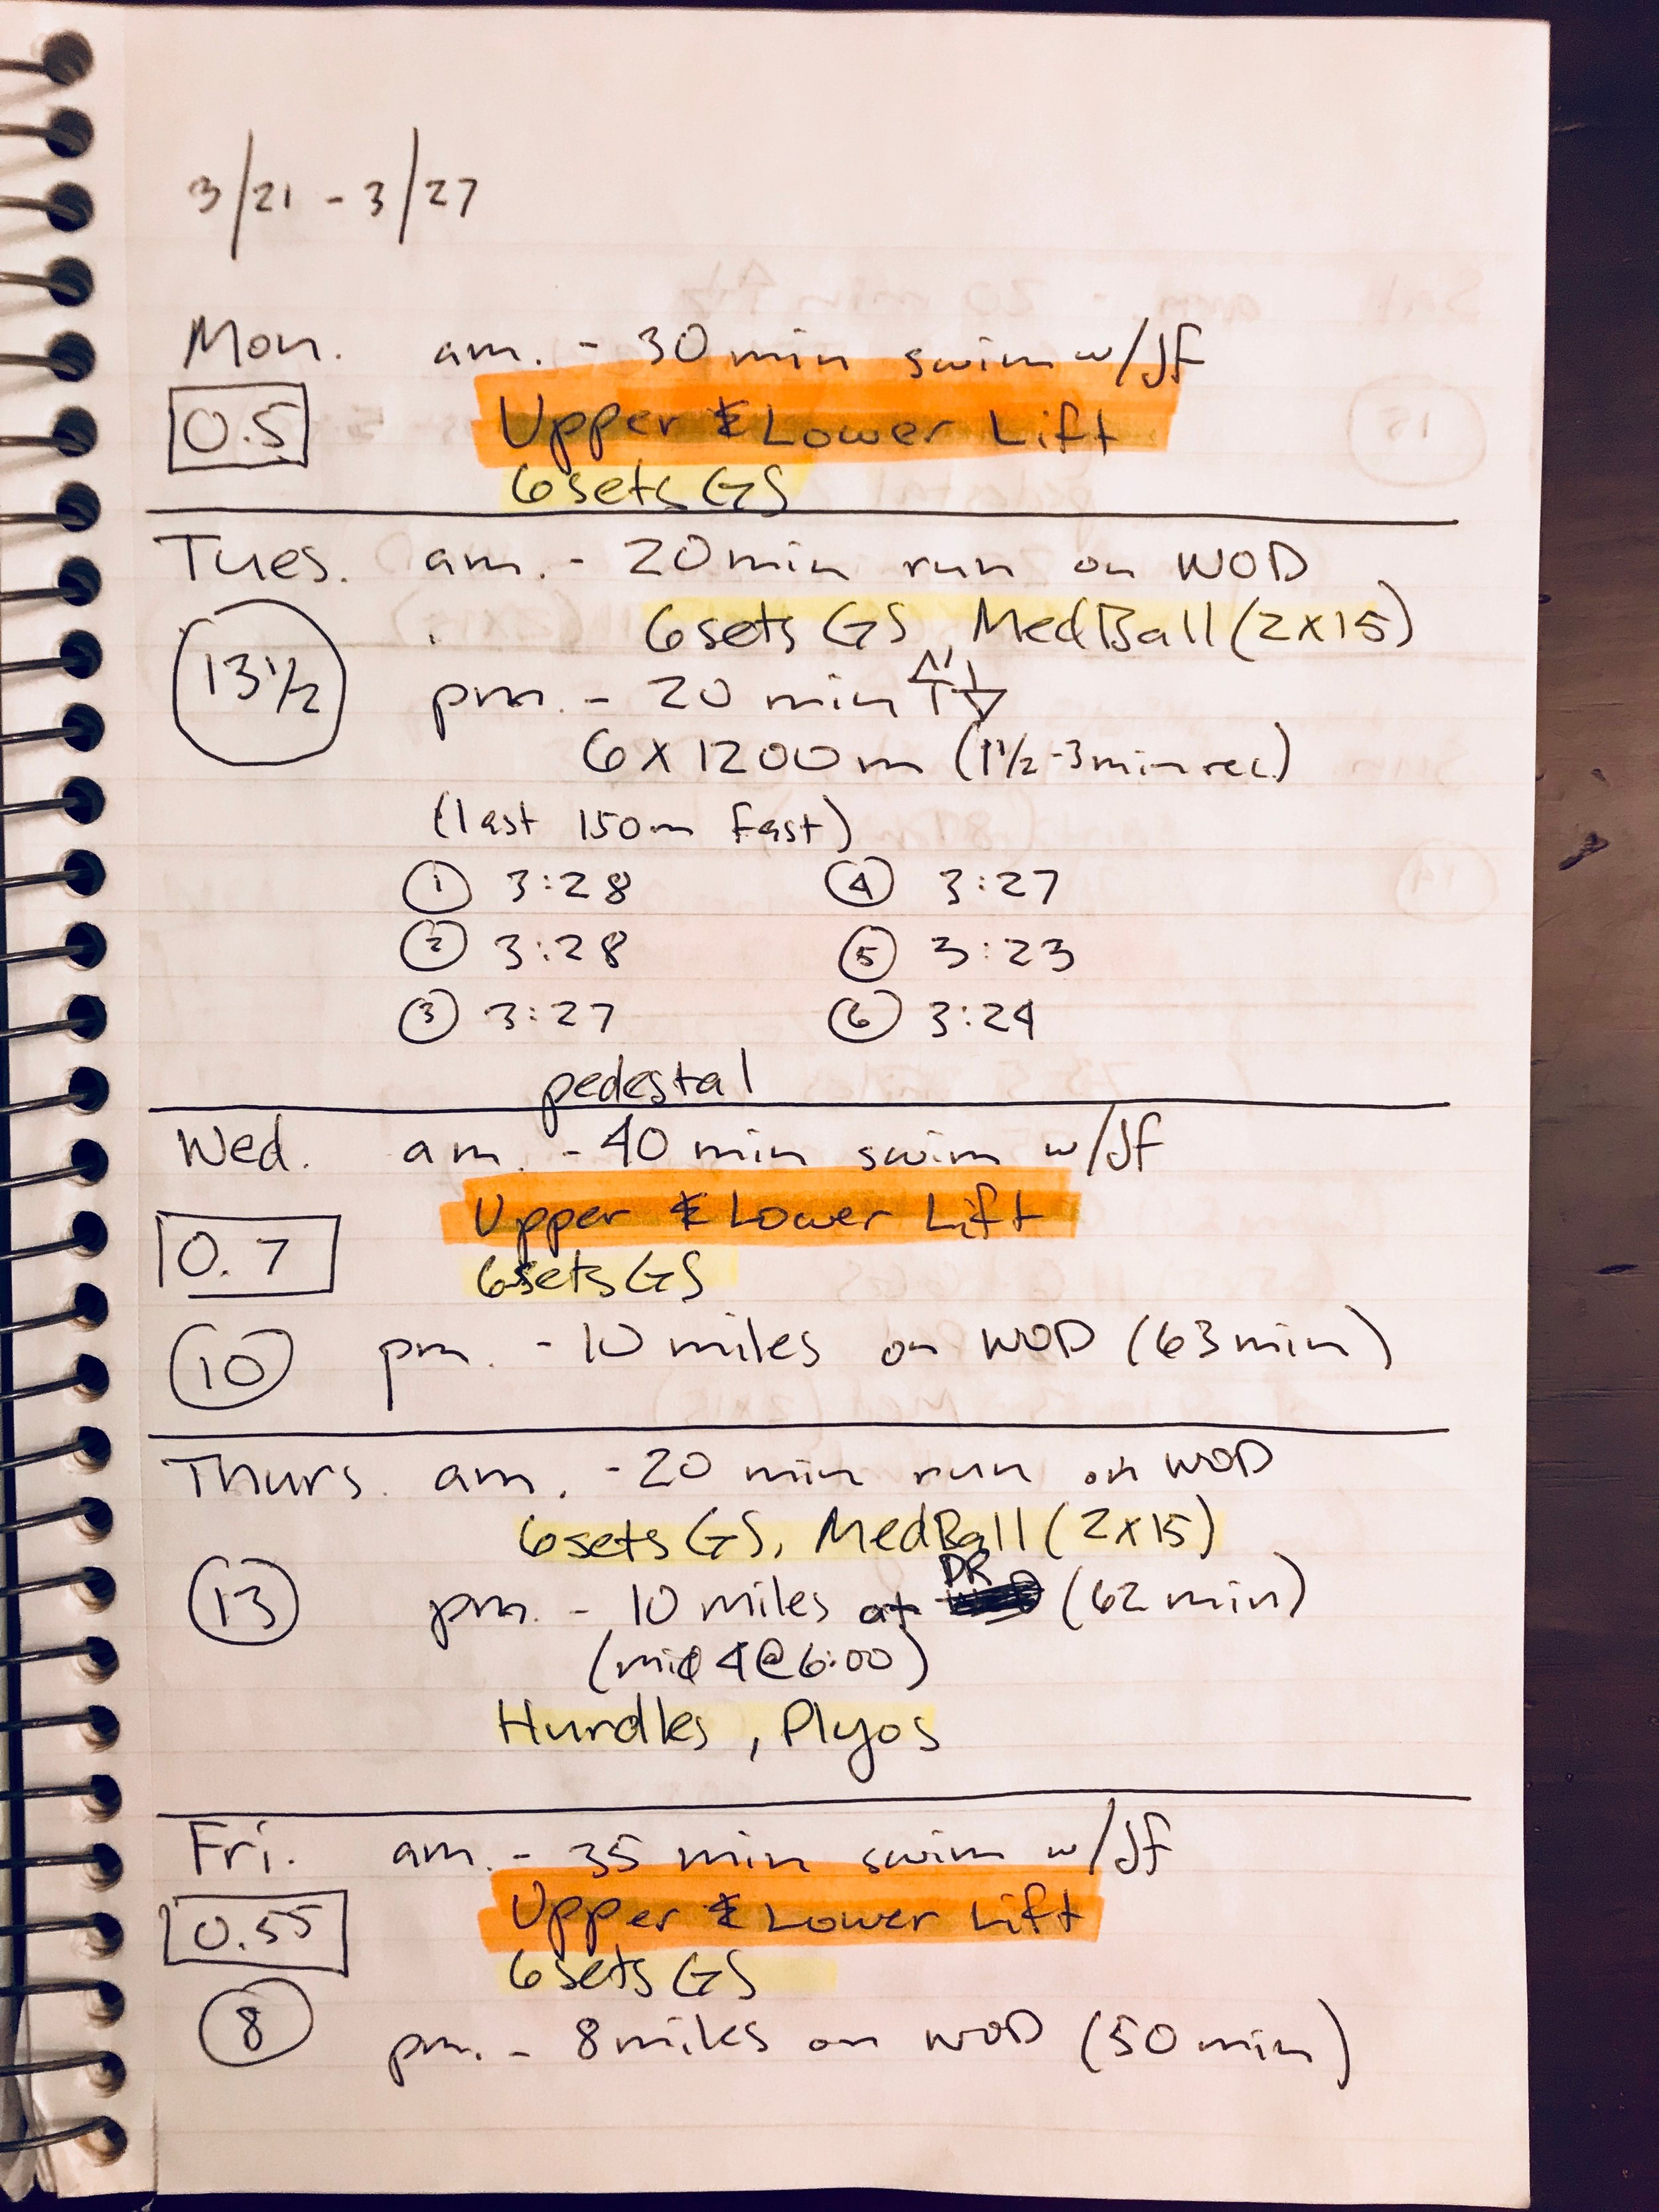 3/21 - 3/27
Mon. am. - 30 min swim w/JF
0.5 Upper & Lower Lift
6 sets GS
Tues. am. - 20 min run on WOD
6 sets GS MedBall (2x15)
13 1/2 pm. - 20 min ↑↓
6 x 1200m (1 1/2 - 3 min rec.)
(last 150m fast)
① 3:28 ④ 3:27
② 3:28 ⑤ 3:23
③ 3:27 ⑥ 3:24
pedestal
Wed. am. - 40 min swim w/JF
Upper & Lower Lift
0.7 6 sets GS
10 pm. - 10 miles on WOD (63 min)
Thurs. am. - 20 min run on WOD
6 sets GS, MedBall (2x15)
13 pm. - 10 miles at DR (62 min)
(mid 4 @ 6:00)
Hurdles, Plyos
Fri. am. - 35 min swim w/JF
0.55 Upper & Lower Lift
6 sets GS
8 pm. - 8 miles on WOD (50 min)